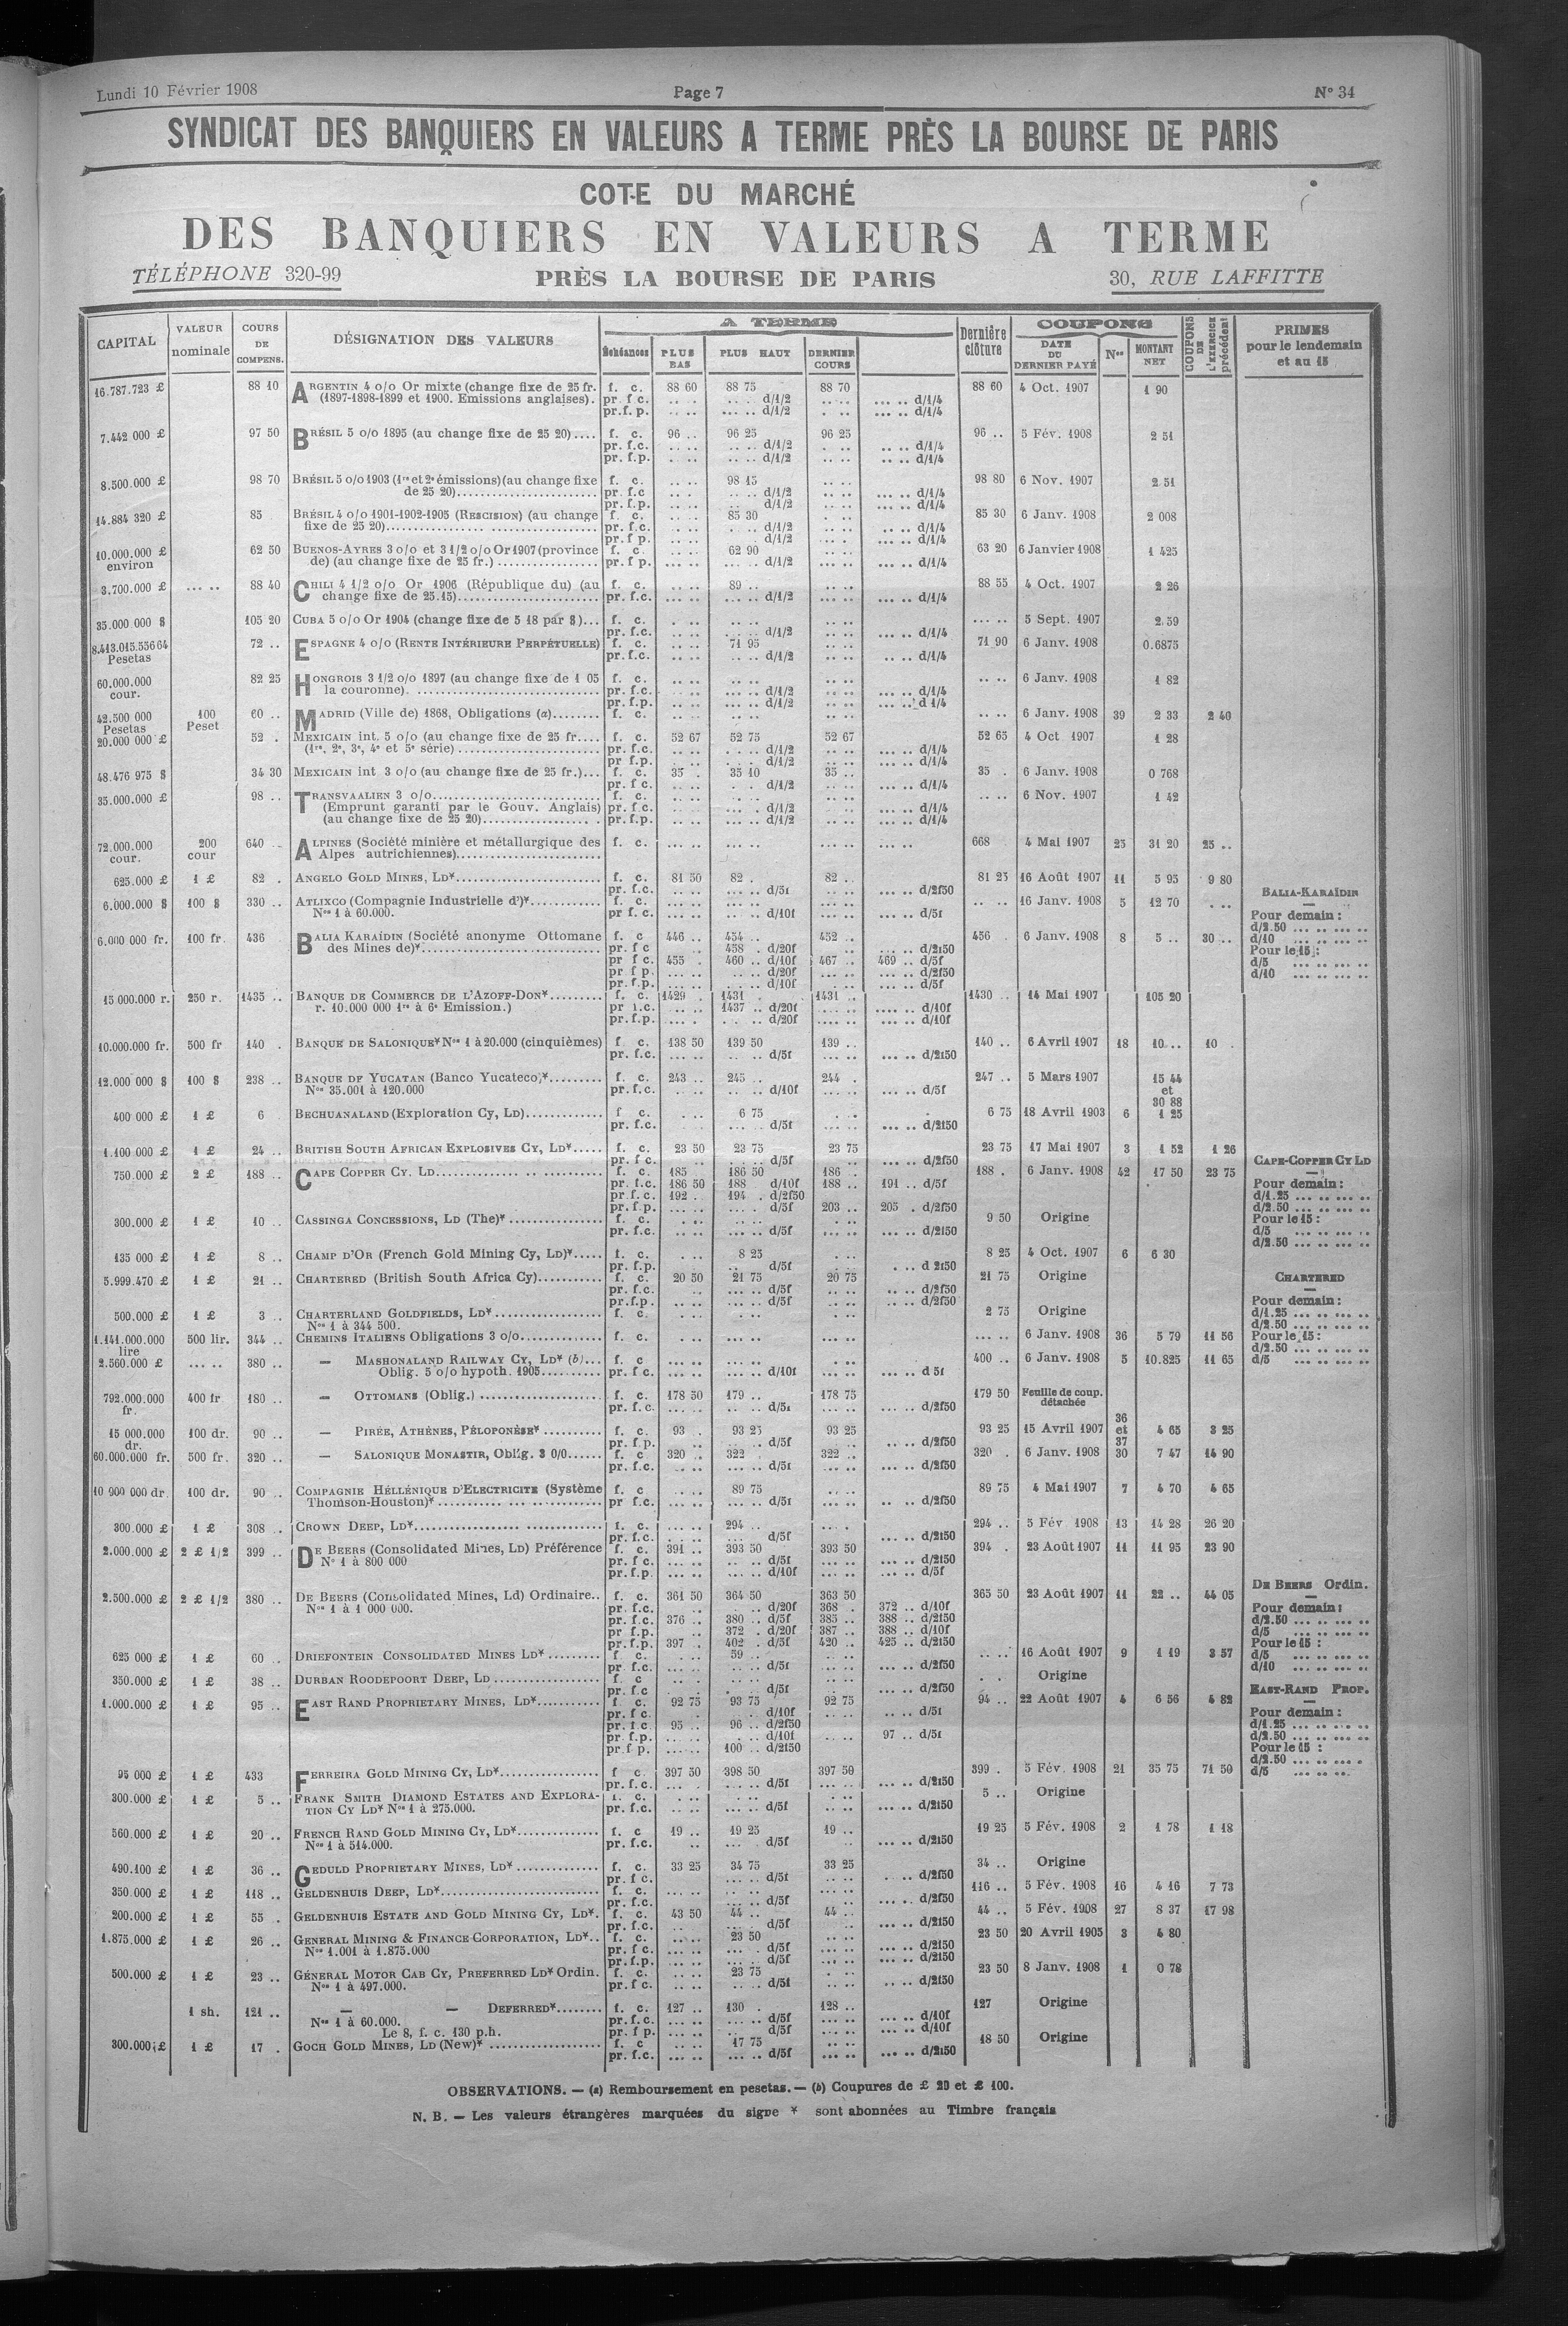 Lundi 10 Février 1908
Page 7
N° 34
SYNDICAT DES BANQUIERS EN VALEURS A TERME PRÈS LA BOURSE DE PARIS
COTE DU MARCHÉ
DES BANQUIERS EN VALEURS A TERME
TÉLÉPHONE 320-99
PRÈS LA BOURSE DE PARIS
30, RUE LAFFITTE
CAPITAL
VALEUR nominale
COURS DE COMPENS.
DÉSIGNATION DES VALEURS
A TERME
Échéances
PLUS BAS
PLUS HAUT
DERNIER COURS
Dernière clôture
COUPONS
DATE DU DERNIER PAYÉ
Nos
MONTANT NET
COUPONS DE L'EXERCICE précédent
PRIMES pour le lendemain et au 15
16.787.723 £ 88 10 ARGENTIN 4 o/o Or mixte (change fixe de 25 fr. f. c. 88 60 88 75 88 70 88 60 4 Oct. 1907 1 90
(1897-1898-1899 et 1900. Emissions anglaises). pr. f c. d/1/2 d/1/4
pr.f. p. d/1/2 d/1/4
7.442 000 £ 97 50 BRÉSIL 5 o/o 1895 (au change fixe de 25 20).... f. c. 96 .. 96 25 96 25 96 .. 5 Fév. 1908 2 51
pr. f.c. d/1/2 d/1/4
pr. f.p. d/1/2 d/1/4
8.500.000 £ 98 70 BRÉSIL 5 o/o 1903 (1re et 2e émissions) (au change fixe f. c. 98 15 98 80 6 Nov. 1907 2 51
de 25 20) pr. f.c d/1/2 d/1/4
pr. f.p. d/1/2 d/1/4
14.884 320 £ 85 BRÉSIL 4 o/o 1901-1902-1905 (RESCISION) (au change f. c. 85 30 85 30 6 Janv. 1908 2 008
fixe de 25 20) pr. f.c. d/1/2 d/1/4
pr. f p. d/1/2 d/1/4
10.000.000 £ 62 50 BUENOS-AYRES 3 o/o et 3 1/2 o/o Or 1907 (province f. c. 62 90 63 20 6 Janvier 1908 1 425
environ de) (au change fixe de 25 fr.) pr. f p. d/1/2 d/1/4
3.700.000 £ 88 40 CHILI 4 1/2 o/o Or 1906 (République du) (au f. c. 89 .. 88 55 4 Oct. 1907 2 26
change fixe de 25.15) pr. f.c. d/1/2 d/1/4
35.000 000 $ 105 20 CUBA 5 o/o Or 1904 (change fixe de 5 18 par $)... f. c. 5 Sept. 1907 2.59
pr. f.c. d/1/2 d/1/4
8.413.015.556 64 Pesetas 72 .. ESPAGNE 4 o/o (RENTE INTÉRIEURE PERPÉTUELLE) f. c. 71 95 71 90 6 Janv. 1908 0.6875
pr. f.c. d/1/2 d/1/4
60.000.000 cour. 82 25 HONGROIS 3 1/2 o/o 1897 (au change fixe de 1 05 f. c. 6 Janv. 1908 1 82
la couronne). pr. f.c. d/1/2 d/1/4
pr. f.p. d/1/2 d 1/4
42.500 000 Pesetas 100 Peset 60 .. MADRID (Ville de) 1868, Obligations (a) f. c. 6 Janv. 1908 39 2 33 2 40
20.000 000 £ 52 . MEXICAIN int. 5 o/o (au change fixe de 25 fr.... f. c. 52 67 52 75 52 67 52 65 4 Oct. 1907 1 28
(1re, 2e, 3e, 4e et 5e série) pr. f.c. d/1/2 d/1/4
pr f.p. d/1/2 d/1/4
48.476 975 $ 34 30 MEXICAIN int 3 o/o (au change fixe de 25 fr.)... f. c. 35 . 35 10 35 .. 35 . 6 Janv. 1908 0 768
pr. f c. d/1/2 d/1/4
35.000.000 £ 98 .. TRANSVAALIEN 3 o/o f. c. 6 Nov. 1907 1 42
(Emprunt garanti par le Gouv. Anglais) pr. f c. d/1/2 d/1/4
(au change fixe de 25 20) pr. f.p. d/1/2 d/1/4
72.000.000 cour. 200 cour 640 .. ALPINES (Société minière et métallurgique des f. c. 668 4 Mai 1907 25 31 20 25 ..
Alpes autrichiennes)
625.000 £ 1 £ 82 . ANGELO GOLD MINES, LD* f. c. 81 50 82 . 82 .. 81 25 16 Août 1907 11 5 93 9 80
pr. f.c. d/5f d/2f50
6.000.000 $ 100 $ 330 .. ATLIXCO (Compagnie Industrielle d')* f. c. 16 Janv. 1908 5 12 70
Nos 1 à 60.000. pr f. c. d/10f d/5f
6.000 000 fr. 100 fr. 436 BALIA KARAÏDIN (Société anonyme Ottomane f. c 446 .. 454 .. 452 .. 456 . 6 Janv. 1908 8 5 .. 30 ..
des Mines de)* pr. f c 458 . d/20f d/2f50
pr f c. 455 . 460 .. d/10f 467 .. 469 .. d/5f
pr f p. d/20f d/2f50
pr. f.p. d/10f d/5f
BALIA-KARAÏDIN
Pour demain :
d/2.50
d/10
Pour le 15 :
d/5
d/10
15 000.000 r. 250 r. 1435 .. BANQUE DE COMMERCE DE L'AZOFF-DON* f. c. 1429 . 1431 . 1431 .. 1430 .. 14 Mai 1907 105 20
r. 10.000 000 1re à 6e Emission.) pr f.c. 1437 .. d/20f d/10f
pr. f.p. d/20f d/10f
10.000.000 fr. 500 fr 140 . BANQUE DE SALONIQUE* Nos 1 à 20.000 (cinquièmes) f c. 138 50 139 50 139 .. 140 .. 6 Avril 1907 18 10 .. 10 .
pr. f.c. d/5f d/2f50
12.000 000 $ 100 $ 238 .. BANQUE DE YUCATAN (Banco Yucateco)* f. c. 243 .. 245 .. 244 . 247 .. 5 Mars 1907 15 44 et 30 88
Nos 35.001 à 120.000 pr. f.c. d/10f d/5f
400 000 £ 1 £ 6 BECHUANALAND (Exploration Cy, LD) f c. 6 75 6 75 18 Avril 1903 6 1 25
pr. f.c. d/5f d/2f50
1.100 000 £ 1 £ 24 .. BRITISH SOUTH AFRICAN EXPLOSIVES CY, LD* f. c. 23 50 23 75 23 75 23 75 17 Mai 1907 3 1 52 1 26
pr. f c. d/5f d/2f50
750.000 £ 2 £ 188 .. CAPE COPPER CY. LD f. c. 185 186 50 186 . 188 . 6 Janv. 1908 42 17 50 23 75
pr. f.c. 186 50 188 d/10f 188 .. 191 .. d/5f
pr.f. c. 192 .. 194 . d/2f50
pr. f.p. d/5f 203 .. 205 . d/2f50
CAPE-COPPER CY LD
Pour demain :
d/1.25
d/2.50
Pour le 15 :
d/5
d/2.50
300.000 £ 1 £ 10 .. CASSINGA CONCESSIONS, LD (The)* f. c. 9 50 Origine
pr. f.c. d/5f d/2f50
135 000 £ 1 £ 8 .. CHAMP D'OR (French Gold Mining Cy, LD)* f. c. 8 25 8 25 4 Oct. 1907 6 6 30
pr. f.p. d/5f d 2f50
5.999.470 £ 1 £ 21 .. CHARTERED (British South Africa Cy) f. c. 20 50 21 75 20 75 21 75 Origine
pr. f.c. d/5f d/2f50
pr.f.p. d/5f d/2f50
CHARTERED
Pour demain :
d/1.25
d/2.50
Pour le 15 :
d/2.50
d/5
500.000 £ 1 £ 3 .. CHARTERLAND GOLDFIELDS, LD* f. c. 2 75 Origine
Nos 1 à 344 500.
1.141.000.000 lire 500 lir. 344 .. CHEMINS ITALIENS Obligations 3 o/o f. c. 6 Janv. 1908 36 5 79 11 56
2.560.000 £ 380 .. — MASHONALAND RAILWAY CY, LD* (b)... f. c 400 .. 6 Janv. 1908 5 10.825 11 65
Oblig. 5 o/o hypoth. 1905 pr. f c. d/10f d 5f
792.000.000 fr. 400 fr 180 .. — OTTOMANS (Oblig.) f. c. 178 50 179 .. 178 75 179 50 Feuille de coup. détachée
pr. f.c. d/5f d/2f50
15 000.000 dr. 100 dr. 90 .. — PIRÉE, ATHÈNES, PÉLOPONÈSE* f. c. 93 . 93 25 93 25 93 25 15 Avril 1907 36 et 37 4 65 3 25
pr. f p. d/5f d/2f50
60.000.000 fr. 500 fr. 320 .. — SALONIQUE MONASTIR, Oblig. 3 0/0 f. c 320 .. 322 . 322 .. 320 . 6 Janv. 1908 30 7 47 14 90
pr. f.c. d/5f d/2f50
10 900 000 dr. 100 dr. 90 .. COMPAGNIE HÉLLÉNIQUE D'ELECTRICITE (Système f. c 89 75 89 75 4 Mai 1907 7 4 70 4 65
Thomson-Houston)* pr f.c. d/5f d/2f50
300.000 £ 1 £ 308 .. CROWN DEEP, LD* f. c. 294 .. 294 .. 5 Fév 1908 13 14 28 26 20
pr. f.c. d/5f d/2f50
2.000.000 £ 2 £ 1/2 399 .. DE BEERS (Consolidated Mines, LD) Préférence f. c. 391 .. 393 50 393 50 394 . 23 Août 1907 11 11 95 23 90
N° 1 à 800 000 pr. f c. d/5f d/2f50
pr. f.p. d/10f d/5f
2.500.000 £ 2 £ 1/2 380 .. DE BEERS (Consolidated Mines, Ld) Ordinaire.. f. c. 361 50 364 50 363 50 365 50 23 Août 1907 11 22 .. 44 05
Nos 1 à 1 000 000. pr. f.c. d/20f 368 . 372 .. d/10f
pr. f.c. 376 .. 380 .. d/5f 385 .. 388 .. d/2f50
pr f.p. 372 . d/20f 387 .. 388 .. d/10f
pr. f.p. 397 . 402 . d/5f 420 .. 425 .. d/2f50
DE BEERS Ordin.
Pour demain :
d/2.50
d/5
Pour le 15 :
d/5
d/10
625 000 £ 1 £ 60 .. DRIEFONTEIN CONSOLIDATED MINES LD* f c. 59 .. 16 Août 1907 9 1 19 3 57
pr. f.c. d/5f d/2f50
350.000 £ 1 £ 38 .. DURBAN ROODEPOORT DEEP, LD f. c Origine
pr. f.c d/5f d/2f50
1.000.000 £ 1 £ 95 .. EAST RAND PROPRIETARY MINES, LD* f. c. 92 75 93 75 92 75 94 .. 22 Août 1907 4 6 56 4 82
pr. f c. d/10f d/5f
pr. f c 95 .. 96 .. d/2f50
pr. f.p. d/10f 97 .. d/5f
pr f p. 100 .. d/2f50
EAST-RAND PROP.
Pour demain :
d/1.25
d/2.50
Pour le 15 :
d/2.50
d/5
95 000 £ 1 £ 433 FERREIRA GOLD MINING CY, LD* f c. 397 50 398 50 397 50 399 . 5 Fév. 1908 21 35 75 71 50
pr. f.c. d/5f d/2f50
300.000 £ 1 £ 5 .. FRANK SMITH DIAMOND ESTATES AND EXPLORA- f. c. 5 .. Origine
TION CY LD* Nos 1 à 275.000. pr. f.c. d/5f d/2f50
560.000 £ 1 £ 20 .. FRENCH RAND GOLD MINING CY, LD* f. c 19 .. 19 25 19 .. 19 25 5 Fév. 1908 2 1 78 1 18
Nos 1 à 514.000. pr. f.c. d/5f d/2f50
490.100 £ 1 £ 36 .. GEDULD PROPRIETARY MINES, LD* f. c. 33 25 34 75 33 25 34 .. Origine
pr. f c. d/5f d/2f50
350.000 £ 1 £ 118 .. GELDENHUIS DEEP, LD* f. c. 116 .. 5 Fév. 1908 16 4 16 7 73
pr. f.c. d/5f d/2f50
200.000 £ 1 £ 55 . GELDENHUIS ESTATE AND GOLD MINING CY, LD*. f. c. 43 50 44 .. 44 .. 44 .. 5 Fév. 1908 27 8 37 17 98
pr. f.c. d/5f d/2f50
1.875.000 £ 1 £ 26 .. GENERAL MINING & FINANCE CORPORATION, LD*.. f. c. 23 50 23 50 20 Avril 1905 3 4 80
Nos 1.001 à 1.875.000 pr. f c. d/5f d/2f50
pr. f.p. d/5f d/2f50
500.000 £ 1 £ 23 .. GÉNERAL MOTOR CAB CY, PREFERRED LD* Ordin. f. c. 23 75 23 50 8 Janv. 1908 1 0 78
Nos 1 à 497.000. pr. f c. d/5f d/2f50
1 sh. 121 .. — — DEFERRED* f. c. 127 .. 130 . 128 .. 127 Origine
Nos 1 à 60.000. pr. f.c. d/5f d/10f
Le 8, f. c. 130 p.h. pr. f p. d/5f d/10f
300.000 £ 1 £ 17 . GOCH GOLD MINES, LD (New)* f. c 17 75 18 50 Origine
pr. f.c. d/5f d/2f50
OBSERVATIONS. — (a) Remboursement en pesetas. — (b) Coupures de £ 20 et £ 100.
N. B. — Les valeurs étrangères marquées du signe * sont abonnées au Timbre français